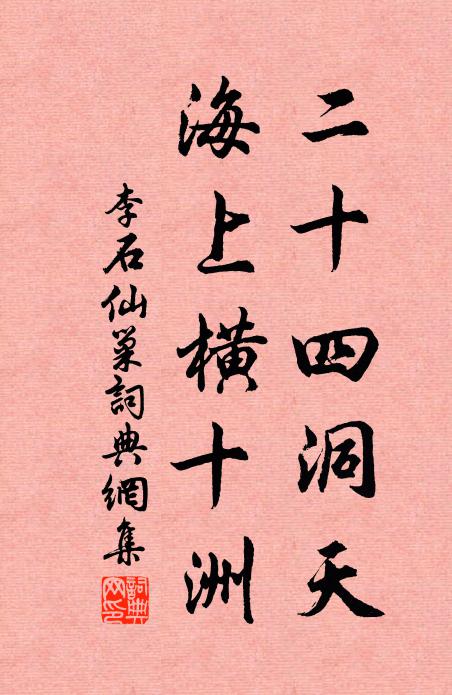 二十四洞天
海上橫十洲
李石仙巢詞典網集
詞典網印